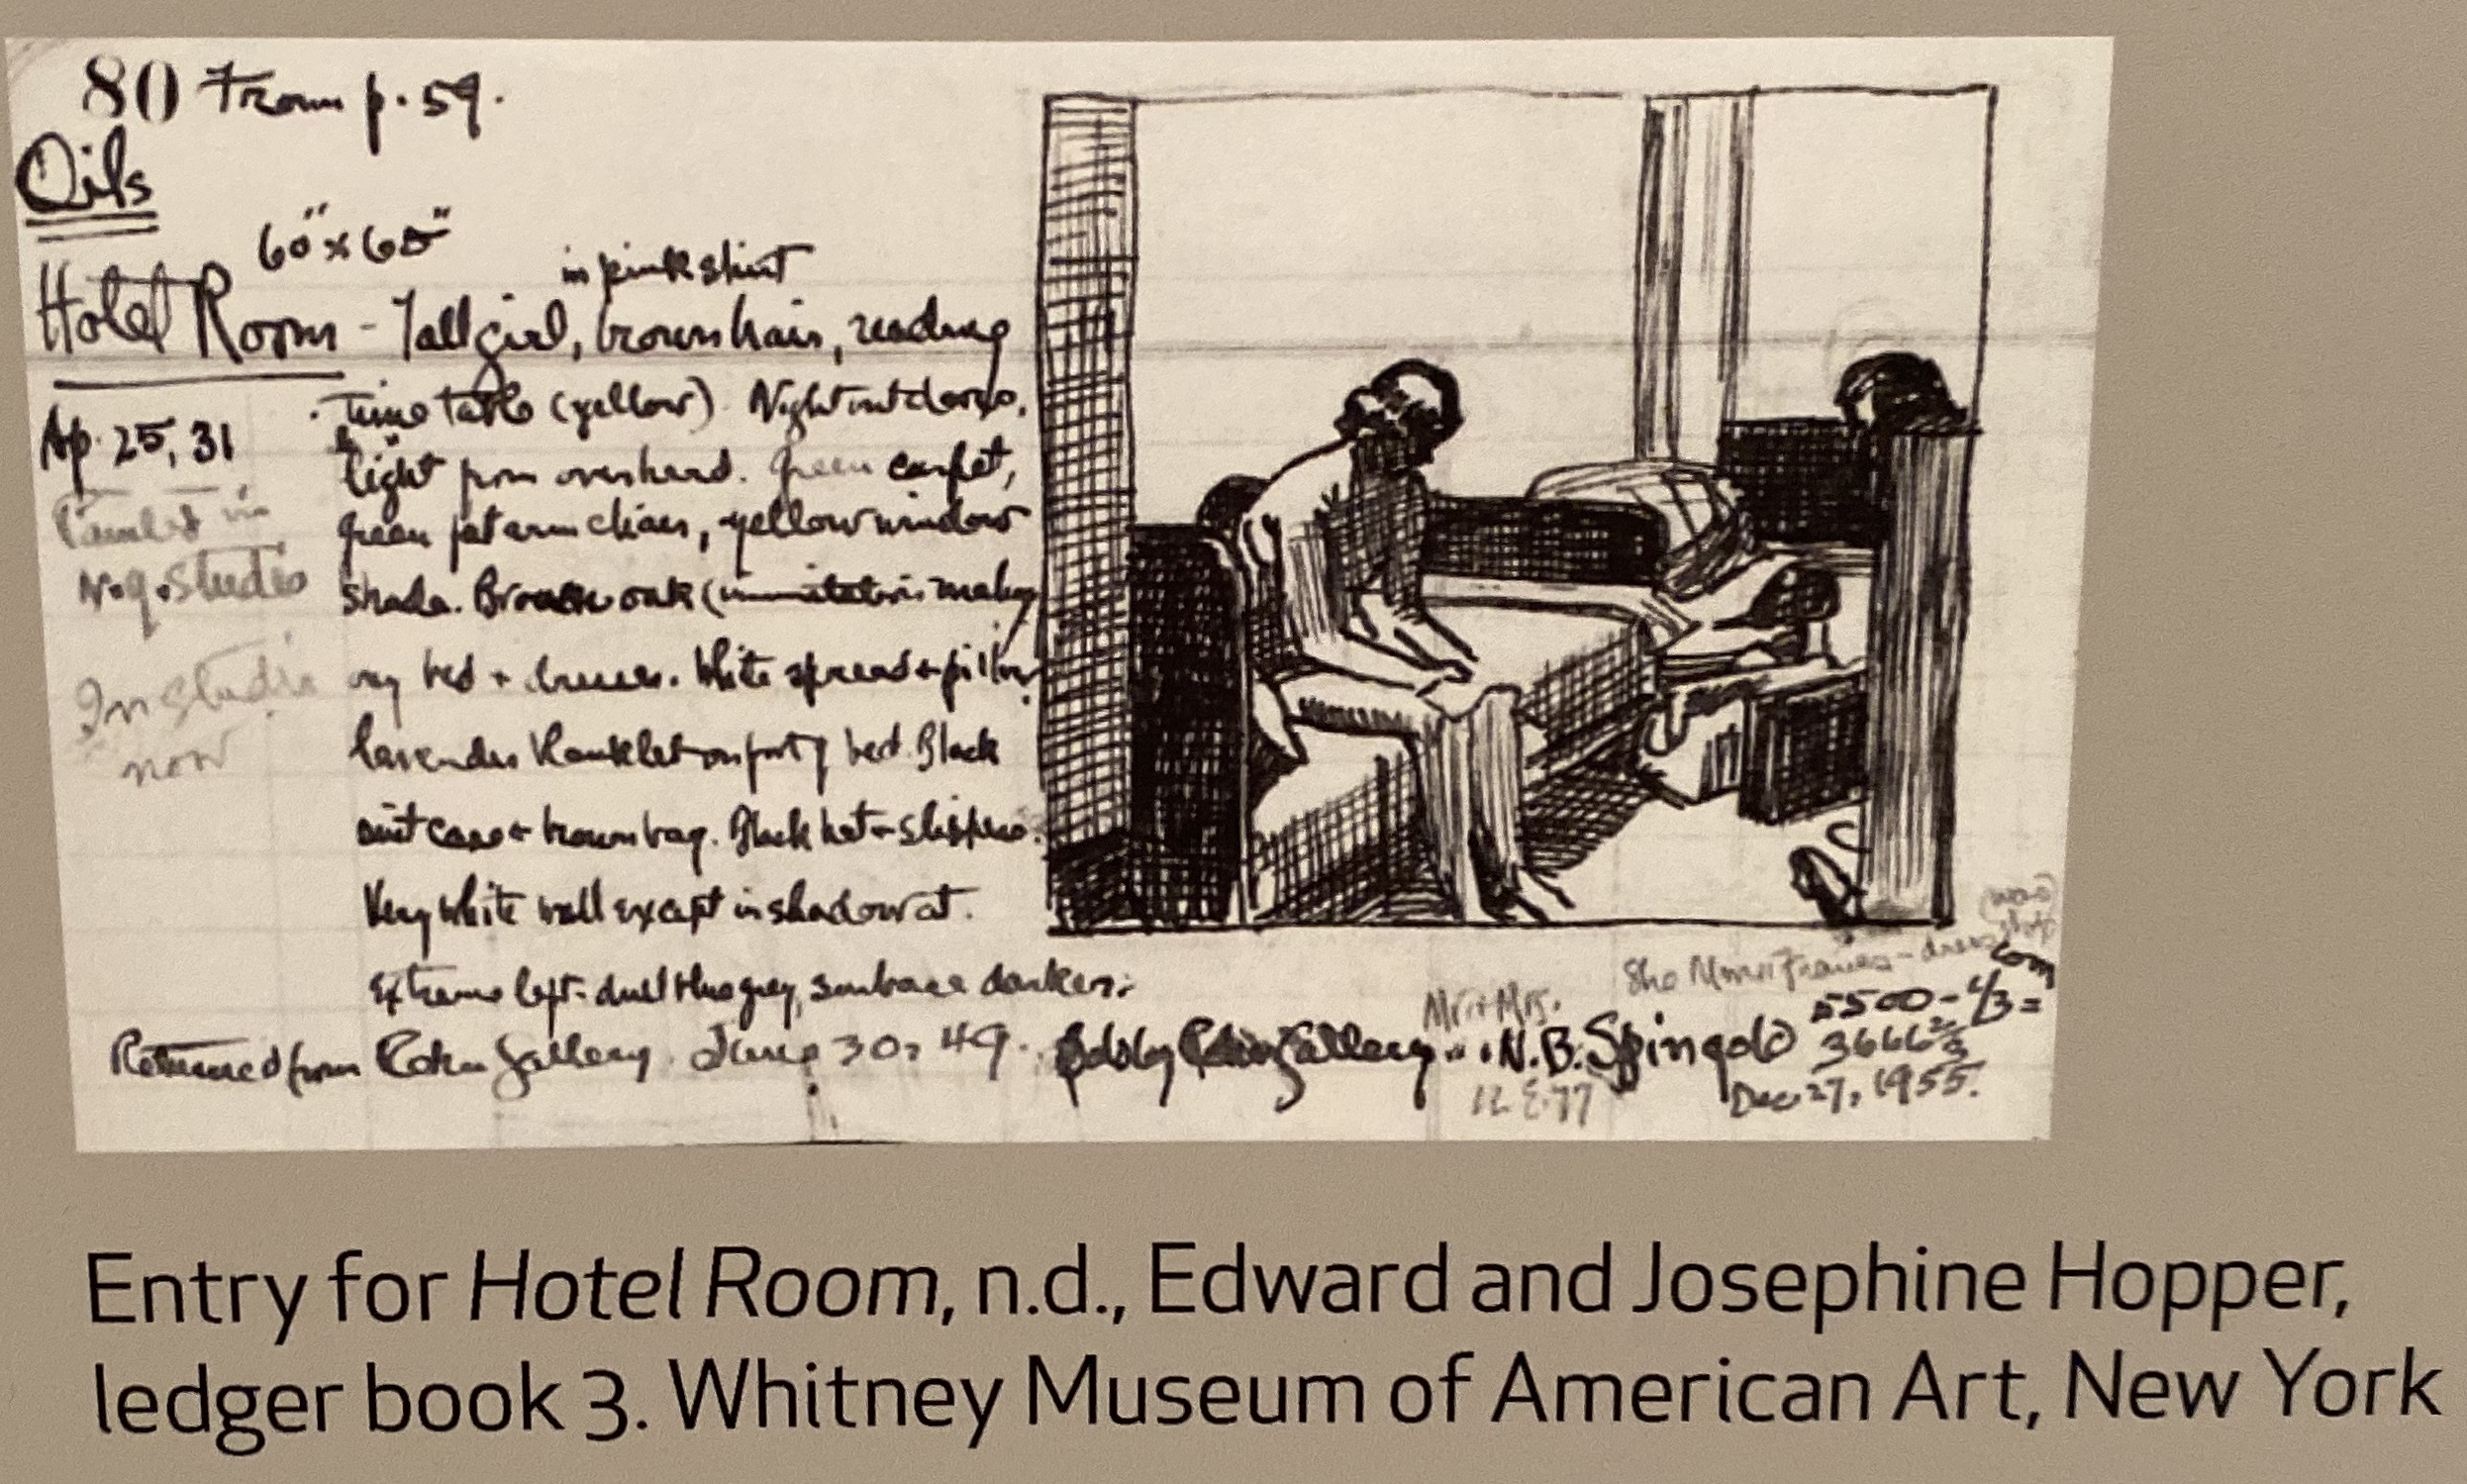 80 From p. 59.
Oils
60" x 65"
in pink shirt
Hotel Room - Tall girl, brown hair, reading
Ap. 25, 31
time table (yellow). Night outdoors,
light from overhead. Green carpet,
Painted in
green fat arm chair, yellow window
N.Y. Studio
shade. Brown oak (immitation mahog
In studio
any bed + dresser. White spread + pillow
now
lavender blanket on foot of bed. Black
suit case + brown bag. Black hat + slippers.
Very white wall except in shadow at
extreme left - dull blue grey, surbase darker.
(was
She Mimi Frances - dress shop
Mr. + Mrs.
5500 - 1/3 = Com
Returned from Rehn Gallery. June 30, 49. Sold by Rehn Gallery N. B. Spingold 3666 2/3
Dec 27, 1955.
Entry for Hotel Room, n.d., Edward and Josephine Hopper,
ledger book 3. Whitney Museum of American Art, New York